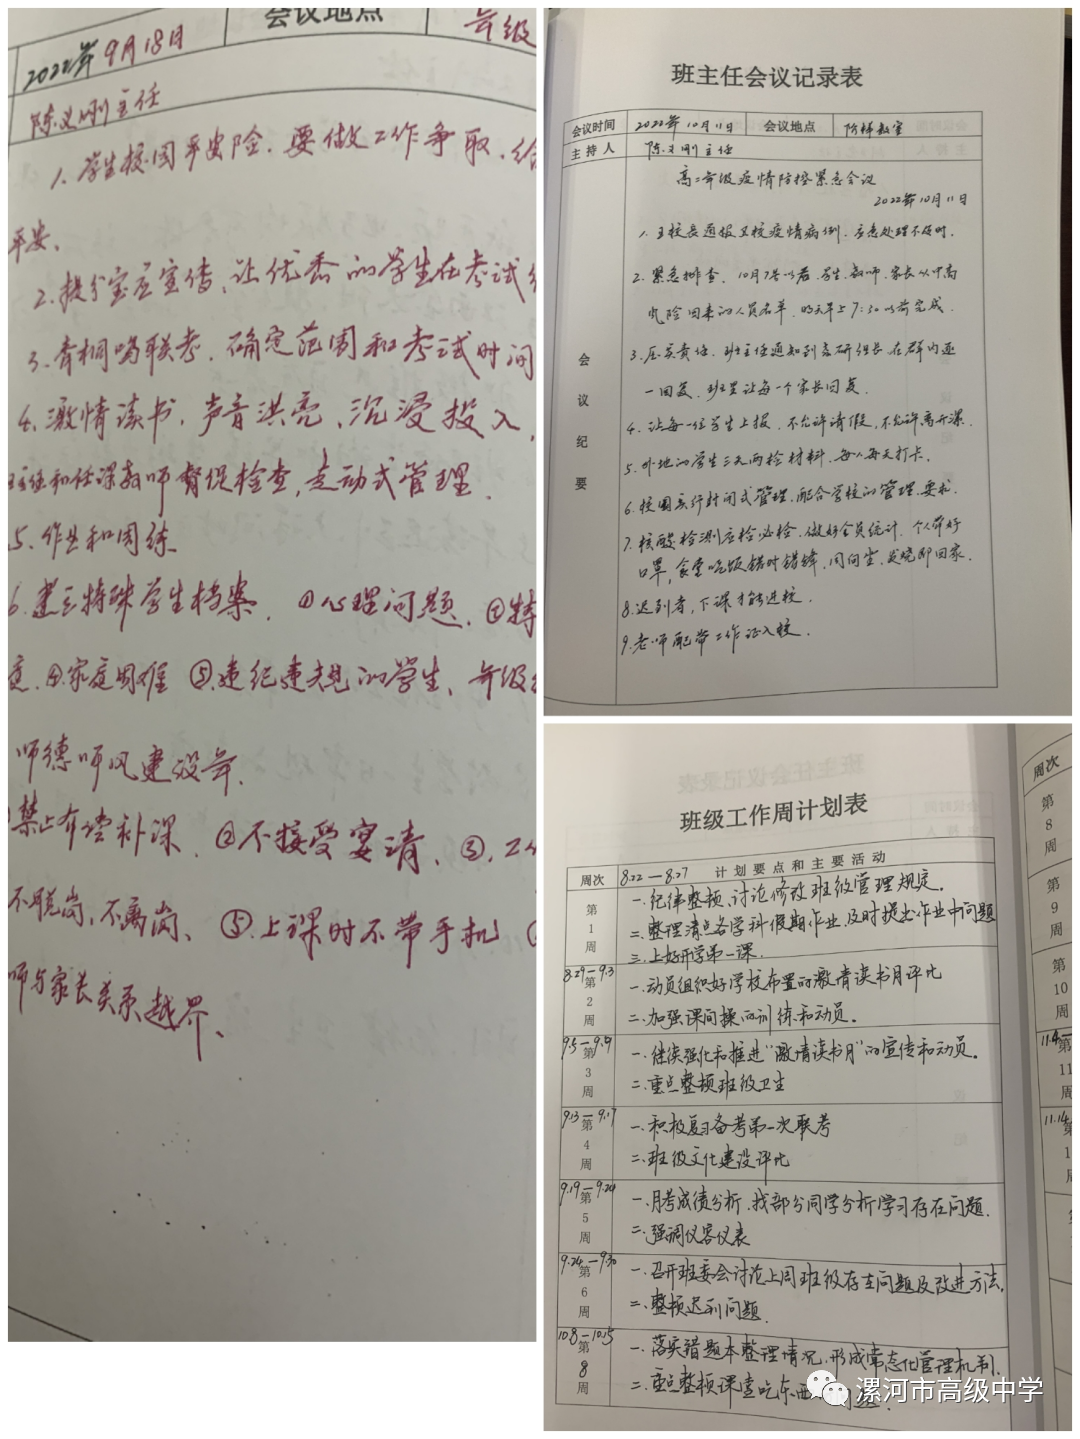 会议地点
2022年9月18日
年级
陈义刚主任
1. 学生校园平安险，要做工作争取，给
平安、
2. 宣传，让优秀的学生在考试
3. 青桐鸣联考，确定范围和考试时间
4. 激情读书，声音洪亮，沉浸投入，
主任和任课教师督促检查，走动式管理．
5. 作业和周练
6. 建立特殊学生档案．①心理问题．②特
意．④家庭困难 ⑤违纪违规的学生、年级
师德师风建设年．
禁止有偿补课．②不接受宴请、③
不脱岗，不离岗、⑤上课时不带手机
师与家长关系越界、
班主任会议记录表
会议时间 2022年10月11日 会议地点 阶梯教室
主持人 陈义刚主任
会议纪要
高二年级疫情防控紧急会议
2022年10月11日
1. 王校长通报某校疫情病例．应急处理不及时．
2. 紧急排查．10月7号以后．学生．教师．家长从中高
风险回来的人员名单．明天早上7:30以前完成．
3. 压实责任．班主任通知到教研组长．在群内逐
一回复．班里让每一个家长回复．
4. 让每一位学生上报．不允许请假，不允许离开漯．
5. 外地的学生三天两检材料．每人每天打卡．
6. 校园实行封闭式管理．配合学校的管理．要求．
7. 核酸检测应检必检．做好全员统计．个人带好
口罩，食堂吃饭错时错锋，同向坐，发烧即回家．
8. 迟到者，下课才能进校．
9. 老师配带工作证入校．
班级工作周计划表
周次 8.22—8.27 计划要点和主要活动
第1周
一．纪律整顿，讨论修改班级管理规定．
二．整理清点各学科假期作业，及时提出作业中问题
三．上好开学第一课．
8.29—9.3
第2周
一．动员组织好学校布置的激情读书月评比
二．加强课间操的训练和动员．
9.5—9.9
第3周
一．继续强化和推进“激情读书月”的宣传和动员．
二．重点整顿班级卫生
9.13—9.17
第4周
一．积极复习备考第一次联考
二．班级文化建设评比
9.19—9.24
第5周
一．月考成绩分析，找部分同学分析学习存在问题．
二．强调仪容仪表
9.24—9.30
第6周
一．召开班委会讨论上周班级存在问题及改进方法．
二．整顿迟到问题．
10.8—10.15
第8周
一．落实错题本整理情况，形成常态化管理机制．
二．重点整顿课堂吃东西
周次
第8周
第9周
第10周
11.4—
第11周
11.14
漯河市高级中学